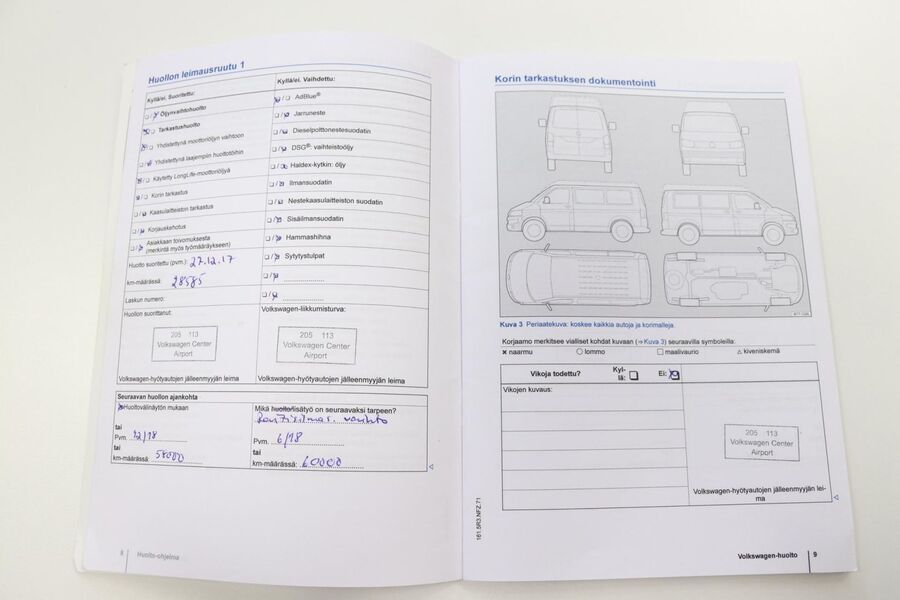 Huollon leimausruutu 1
Kyllä/ei. Suoritettu:
Öljynvaihtohuolto
Tarkastushuolto
Yhdistettynä moottoriöljyn vaihtoon
Yhdistettynä laajempiin huoltotöihin
Käytetty LongLife-moottoriöljyä
Korin tarkastus
Kaasulaitteiston tarkastus
Korjauskehotus
Asiakkaan toivomuksesta
(merkintä myös työmääräykseen)
Huolto suoritettu (pvm.): 27.12.17
km-määrässä: 28585
Laskun numero:
Huollon suorittanut:
205 113
Volkswagen Center
Airport
Volkswagen-hyötyautojen jälleenmyyjän leima
Kyllä/ei. Vaihdettu:
AdBlue®
Jarruneste
Dieselpolttonestesuodatin
DSG®- vaihteistoöljy
Haldex-kytkin: öljy
Ilmansuodatin
Nestekaasulaitteiston suodatin
Sisäilmansuodatin
Hammashihna
Sytytystulpat
Volkswagen-liikkumisturva:
205 113
Volkswagen Center
Airport
Volkswagen-hyötyautojen jälleenmyyjän leima
Seuraavan huollon ajankohta
Huoltovälinäytön mukaan
tai
Pvm. 12/18
tai
km-määrässä: 58000
Mikä huolto/lisätyö on seuraavaksi tarpeen?
vaihto
Pvm. 6/18
tai
km-määrässä: 60000
8 Huolto-ohjelma
Korin tarkastuksen dokumentointi
Kuva 3 Periaatekuva: koskee kaikkia autoja ja korimalleja.
Korjaamo merkitsee vialliset kohdat kuvaan (⇒ Kuva 3) seuraavilla symboleilla:
× naarmu ○ lommo □ maalivaurio △ kiveniskemä
Vikoja todettu? Kyl-
lä: Ei:
Vikojen kuvaus:
205 113
Volkswagen Center
Airport
Volkswagen-hyötyautojen jälleenmyyjän lei-
ma
161.5R3.NFZ.71
Volkswagen-huolto 9